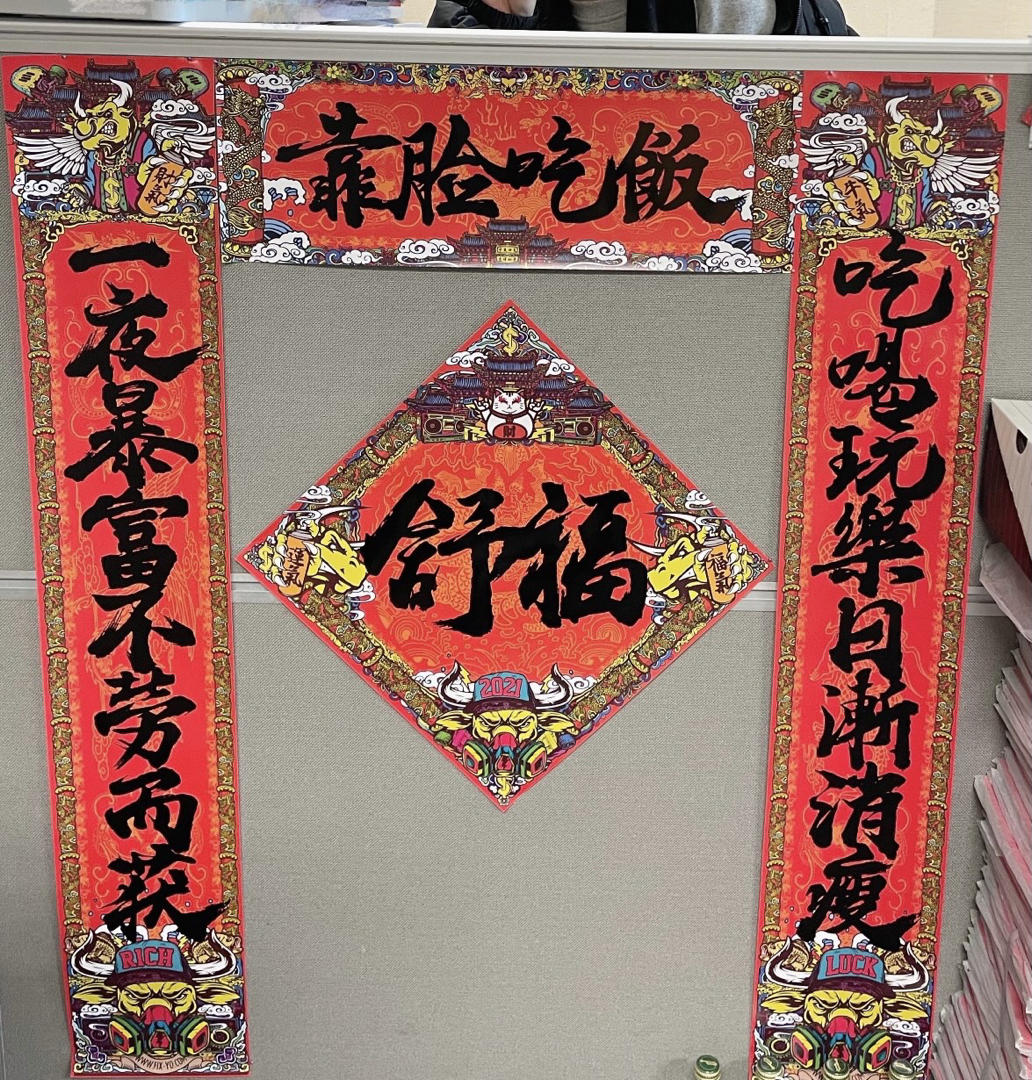 靠脸吃飯
一夜暴富不劳而获
吃喝玩樂日漸消瘦
舒福
財
運氣
福氣
2021
財氣
牛氣
RICH
LUCK
WWW.HX-YD.COM